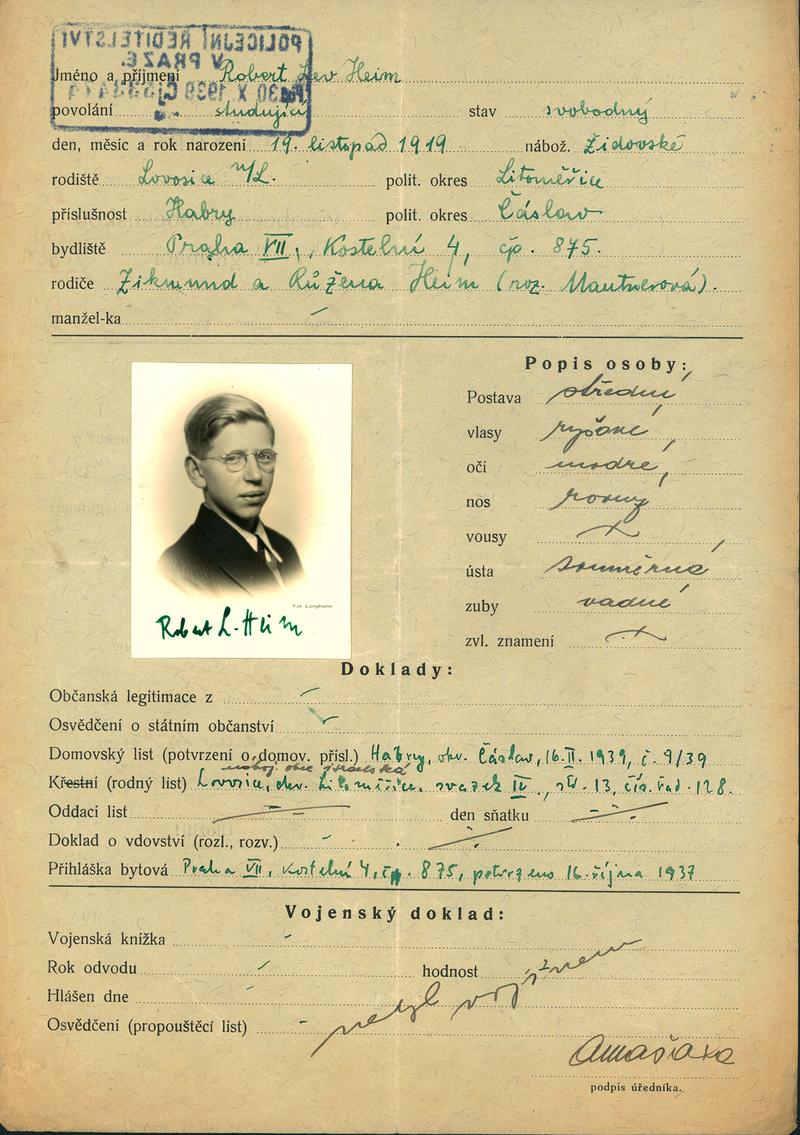 POLICEJNÍ ŘEDITELSTVÍ
V PRAZE.
Jméno a příjmení Robert Lev Heim
30 X 1939
povolání studující stav svobodný
den, měsíc a rok narození 19. listopad 1919 nábož. Židovské
rodiště Lovosice n/L. polit. okres Litoměřice
příslušnost Habry polit. okres Čáslav
bydliště Praha VII, Kostelní 4, čp. 875.
rodiče Zikmund a Růžena Heim (roz. Mautnerová).
manžel-ka
Popis osoby:
Postava střední
vlasy ryšavé
oči modré
nos rovný
vousy
ústa souměrná
zuby vadné
zvl. znamení
Fot Langhans
Robert L. Heim
Doklady:
Občanská legitimace z
Osvědčení o státním občanství
Domovský list (potvrzení o domov. přísl.) Habry, okr. Čáslav, 16.II. 1939, č. 9/39
nábož. obec israelská
Křestní (rodný list) Lovosice, okr. Litoměřice, svazek IV, str. 13, čís. řad. 128.
Oddací list den sňatku
Doklad o vdovství (rozl., rozv.)
Přihláška bytová Praha VII, Kostelní 4, čp. 875, potvrzeno 16. října 1937
Vojenský doklad:
Vojenská knížka
Rok odvodu hodnost
Hlášen dne
nebyl vojínem
Osvědčení (propouštěcí list)
podpis úředníka.